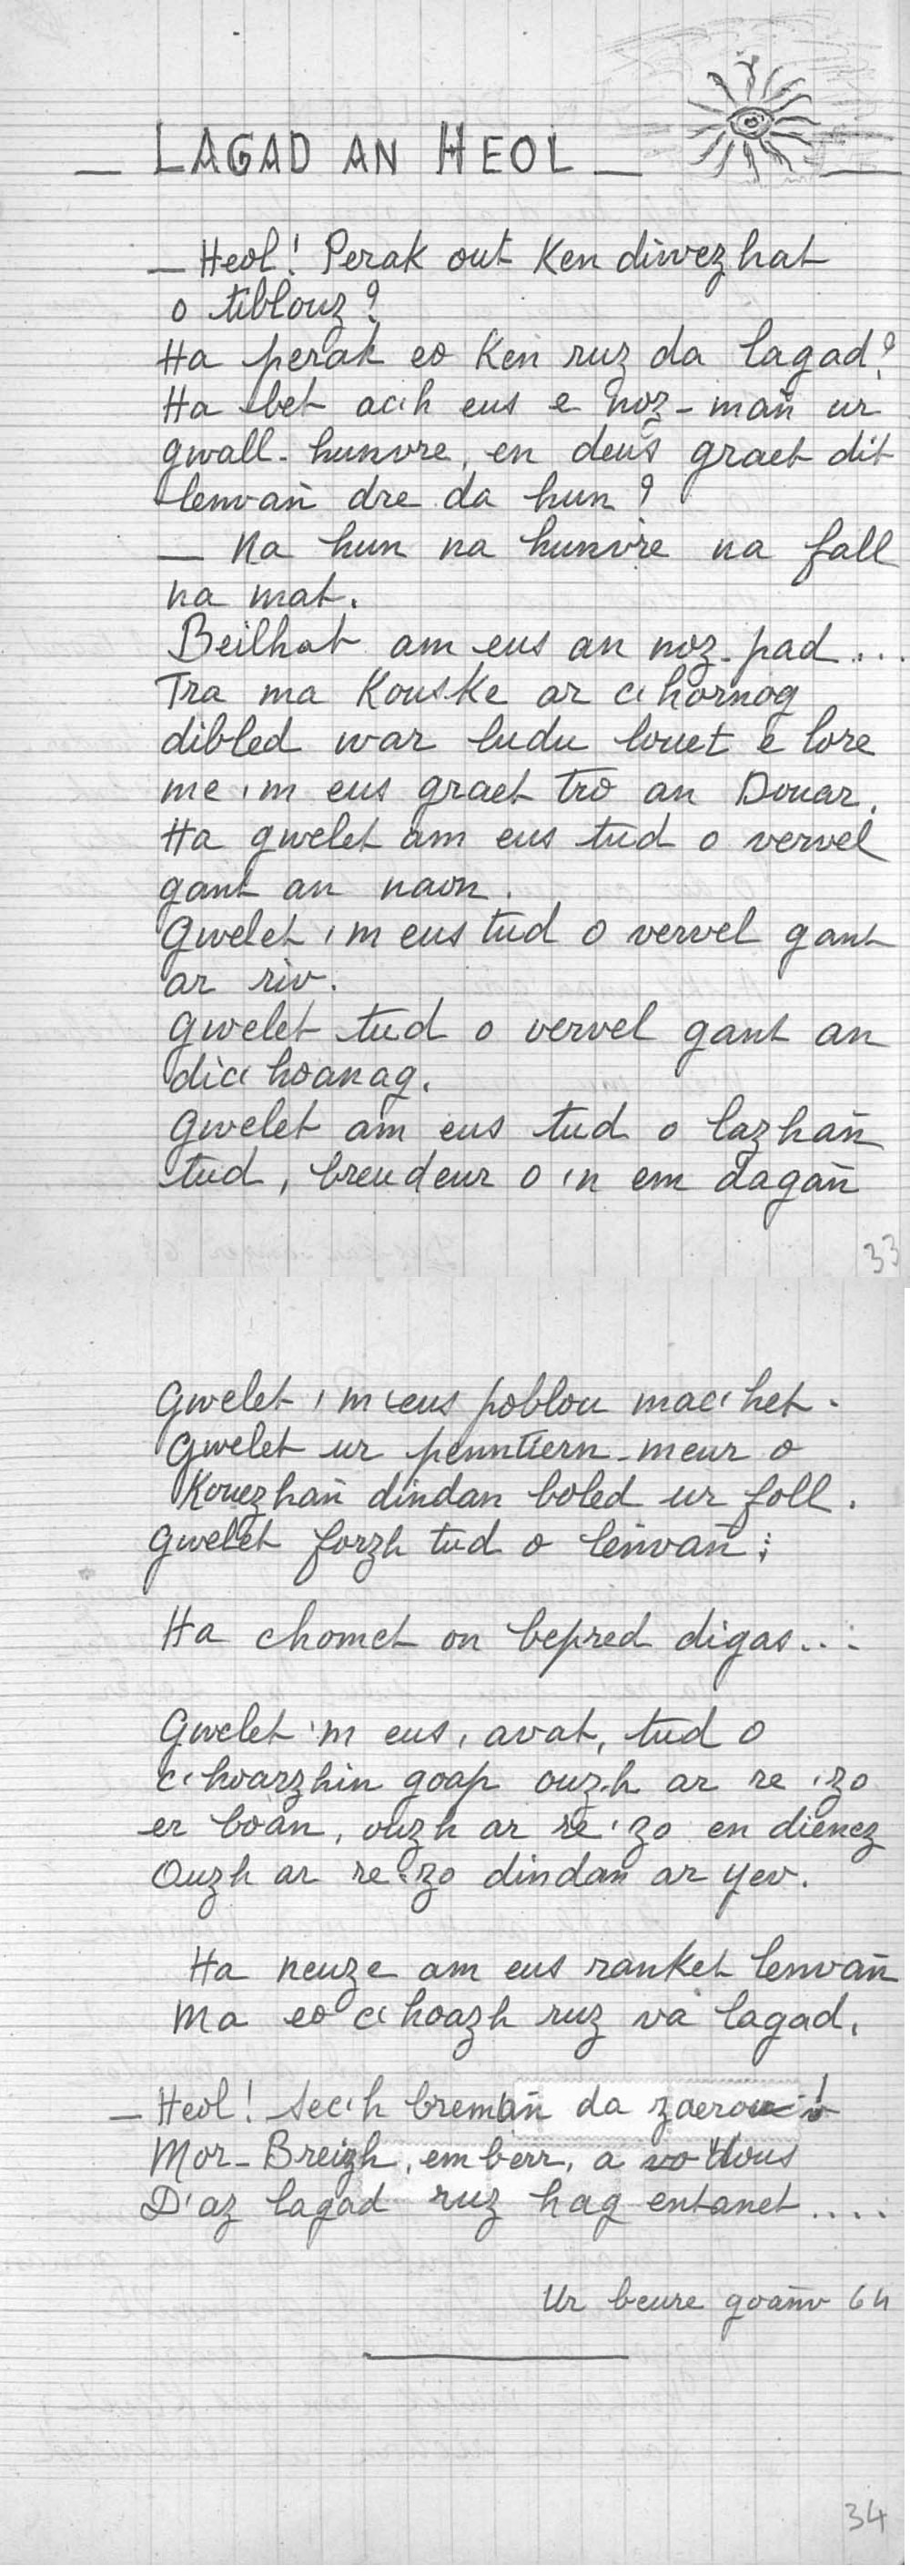 — LAGAD AN HEOL —
— Heol! Perak out ken diwezhat
o tiblouz?
Ha perak eo ken ruz da lagad?
Ha bet ac'h eus e noz-mañ ur
gwall-hunvre, en deus graet dit
leñvañ dre da hun?
— Na hun na hunvre na fall
na mat.
Beilhat am eus an noz-pad...
Tra ma kouske ar c'hornog
dibled war ludu louet e lore
me 'm eus graet tro an Douar.
Ha gwelet am eus tud o vervel
gant an naon.
Gwelet 'm eus tud o vervel gant
ar riv.
Gwelet tud o vervel gant an
dic'hoanag.
Gwelet am eus tud o lazhañ
tud, breudeur o 'n em dagañ
33
Gwelet 'm eus poblou mac'het.
Gwelet ur penntiern-meur o
kouezhañ dindan boled ur foll.
Gwelet forzh tud o leñvañ;
Ha chomet on bepred digas...
Gwelet 'm eus, avat, tud o
c'hoarzhin goap ouzh ar re 'zo
er boan, ouzh ar re 'zo en dienez
Ouzh ar re 'zo dindan ar yev.
Ha neuze am eus ranket leñvañ
Ma eo c'hoazh ruz va lagad.
— Heol! Sec'h bremañ da zaerou!
Mor-Breizh, emberr, a vo dous
D'az lagad ruz hag entanet....
Ur beure goañv 64
34